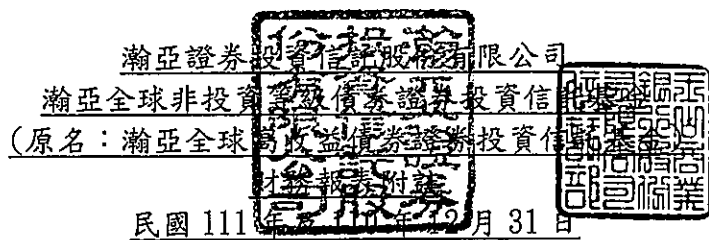 瀚亞證券投資信託股份有限公司
瀚亞全球非投資等級債券證券投資信託基金
(原名：瀚亞全球高收益債券證券投資信託基金)
財務報表附註
民國 111 年及 110 年 12 月 31 日